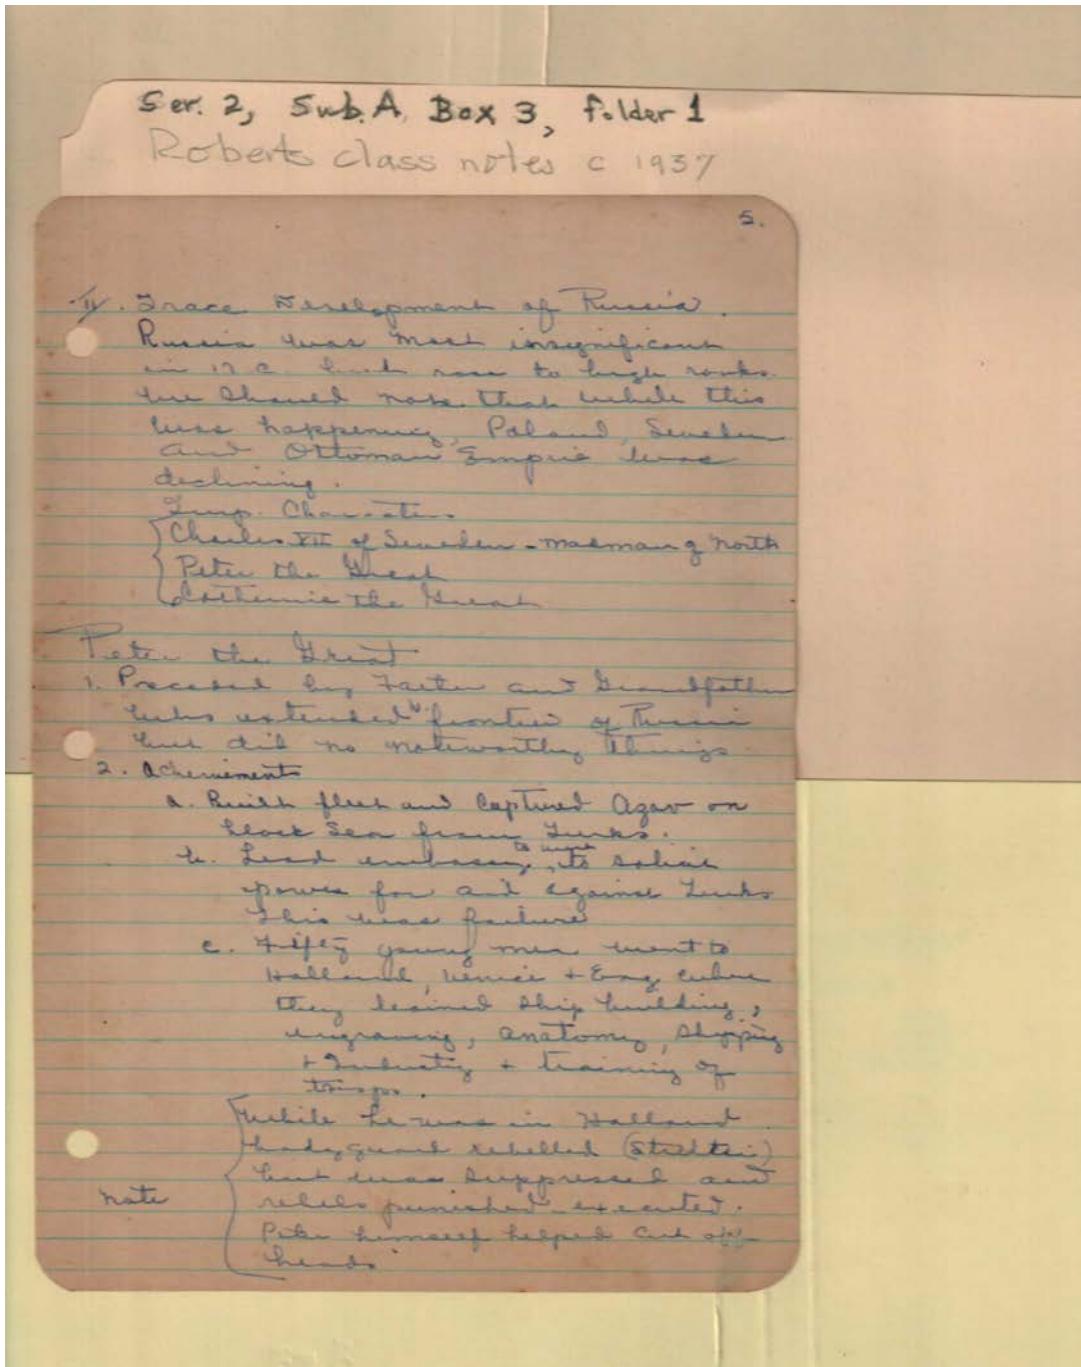 Ser. 2, Sub.A, Box 3, folder 1
Roberts class notes c 1937
5.
IV. Trace Development of Russia.
Russia was most insignificant
in 17 c but rose to high ranks.
We should note that while this
was happening, Poland, Sweden
and Ottoman Empire was
declining.
Imp. Characters
Charles XII of Sweden - madman of north
Peter the Great
Catherine the Great
Peter the Great
1. Preceded by Father and Grandfather
who extended frontier of Russia
but did no noteworthy things
2. Acheivements
a. Built fleet and captured Azav on
black Sea from Turks.
b. Lead embassy to west to solicit
power for aid against Turks
This was failure
c. Fifty young men went to
Holland, Venice + Eng where
they learned ship building,
engraving, anatomy, shipping
+ Industry + training of
troops.
While he was in Holland
bodyguard rebelled
but was suppressed and
note
rebels punished - executed.
Peter himself helped cut off
heads